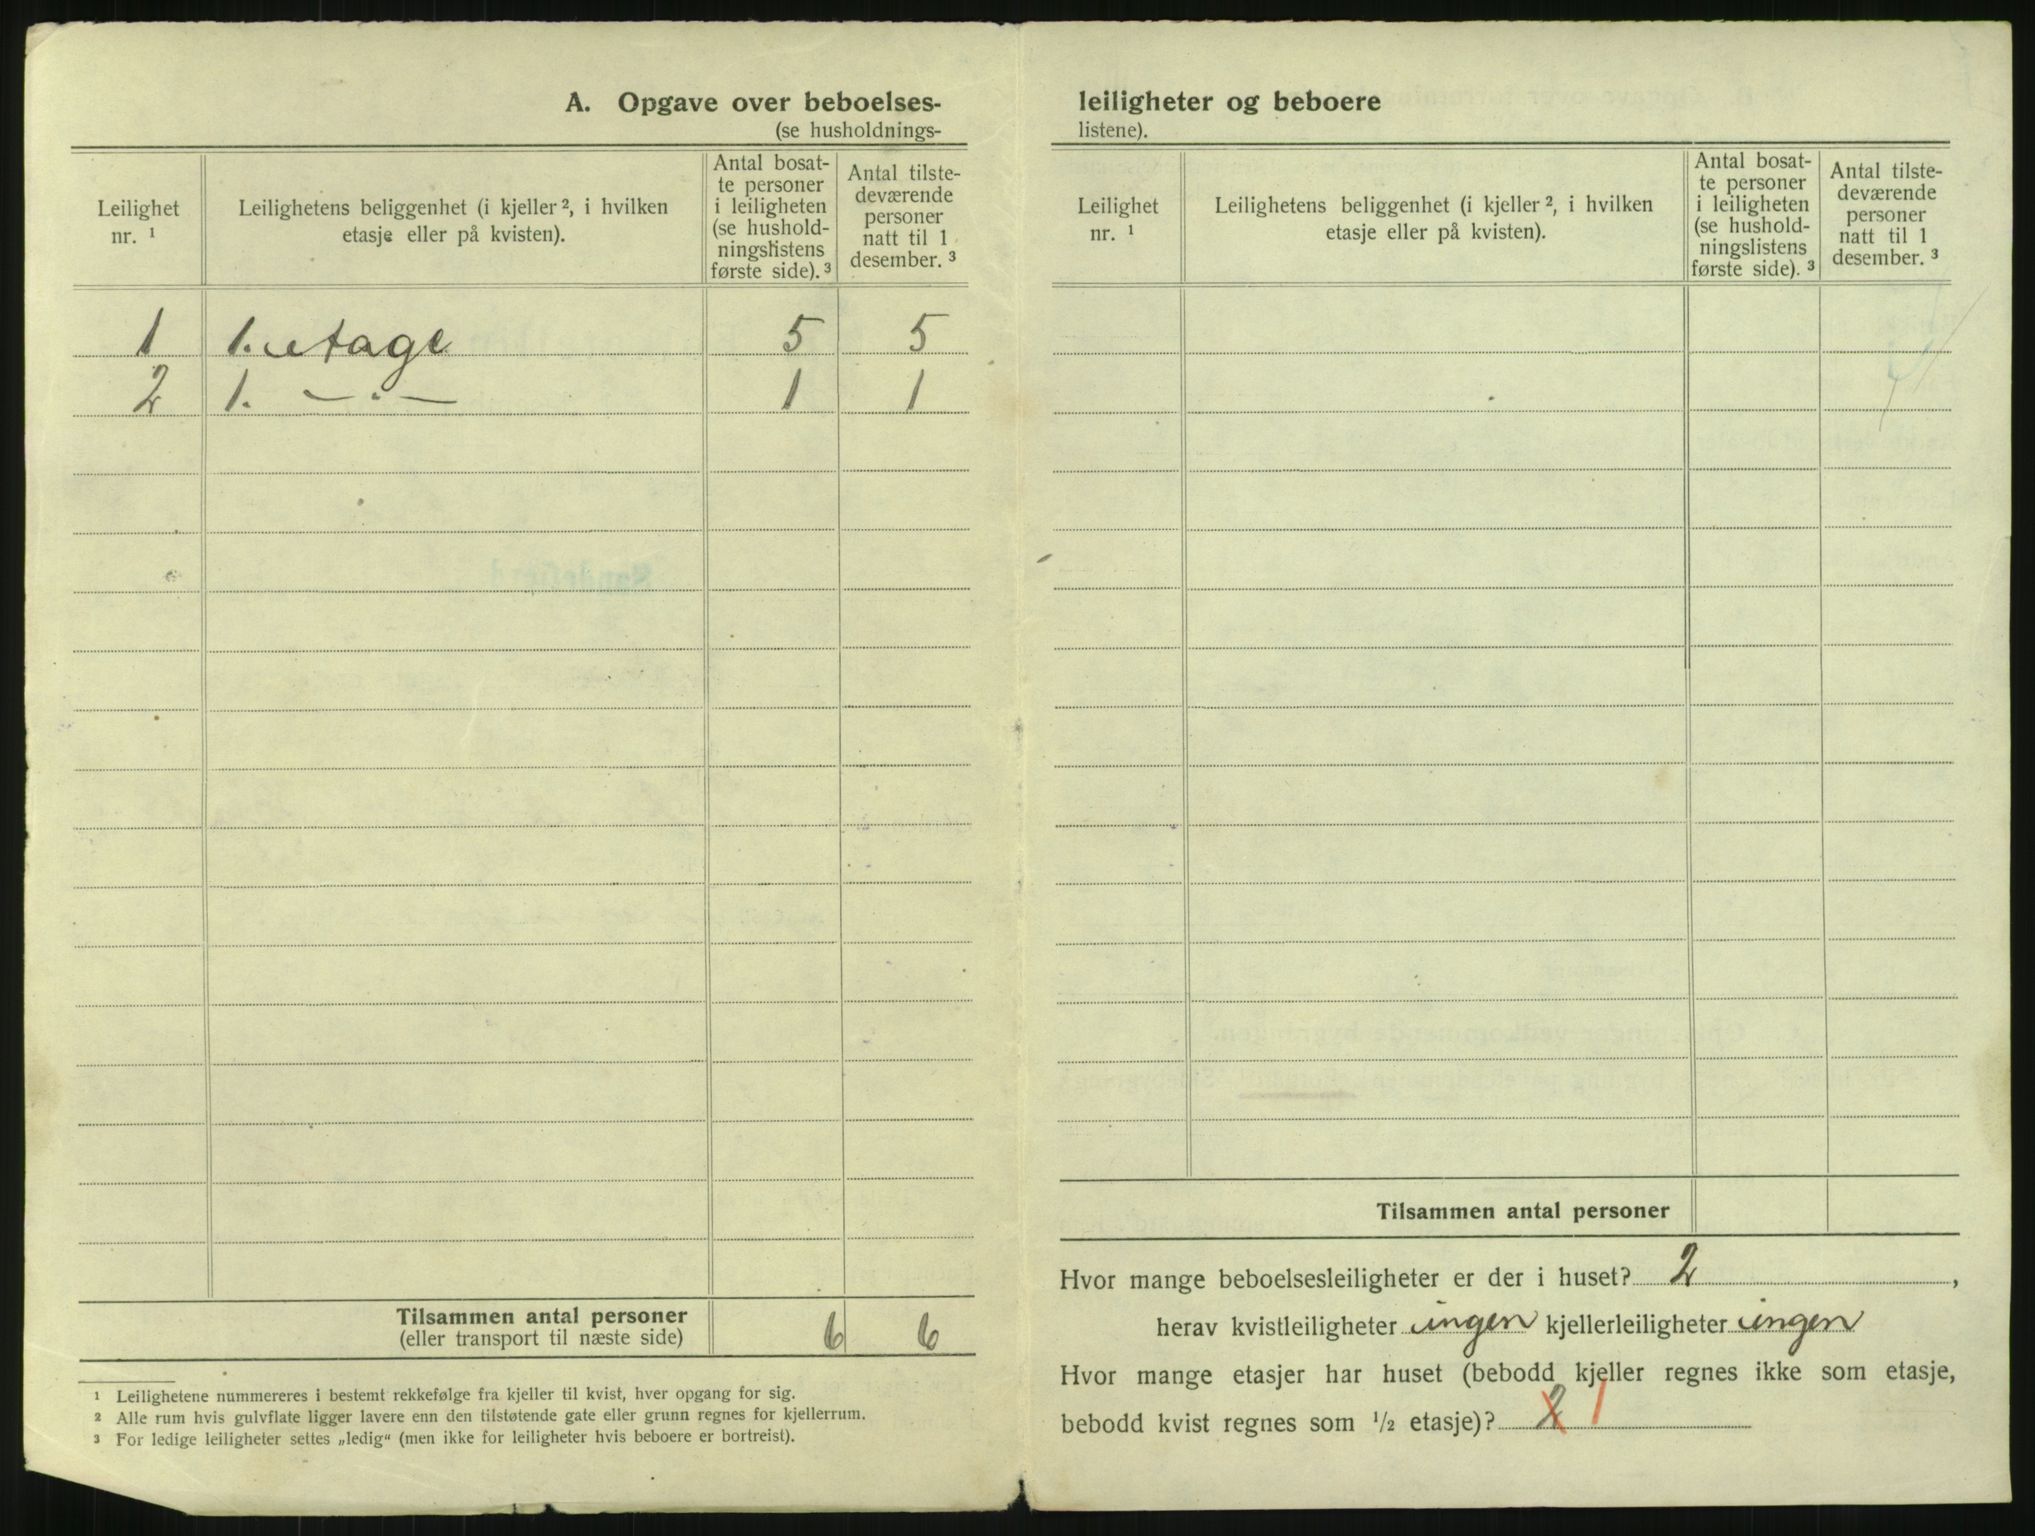 A. Opgave over beboelses-
(se husholdnings-
Leilighet nr. ¹
Leilighetens beliggenhet (i kjeller ², i hvilken
etasje eller på kvisten).
Antal bosat-
te personer
i leiligheten
(se hushold-
ningslistens
første side). ³
Antal tilste-
deværende
personer
natt til 1
desember. ³
1 1. etage 5 5
2 1. — " — 1 1
Tilsammen antal personer
(eller transport til næste side) 6 6
¹ Leilighetene nummereres i bestemt rekkefølge fra kjeller til kvist, hver opgang for sig.
² Alle rum hvis gulvflate ligger lavere enn den tilstøtende gate eller grunn regnes for kjellerrum.
³ For ledige leiligheter settes „ledig“ (men ikke for leiligheter hvis beboere er bortreist).
leiligheter og beboere
listene).
Leilighet
nr. ¹
Leilighetens beliggenhet (i kjeller ², i hvilken
etasje eller på kvisten).
Antal bosat-
te personer
i leiligheten
(se hushold-
ningslistens
første side). ³
Antal tilste-
deværende
personer
natt til 1
desember. ³
Tilsammen antal personer
Hvor mange beboelsesleiligheter er der i huset? 2 ,
herav kvistleiligheter ingen kjellerleiligheter ingen
Hvor mange etasjer har huset (bebodd kjeller regnes ikke som etasje,
bebodd kvist regnes som ½ etasje)? 2 1